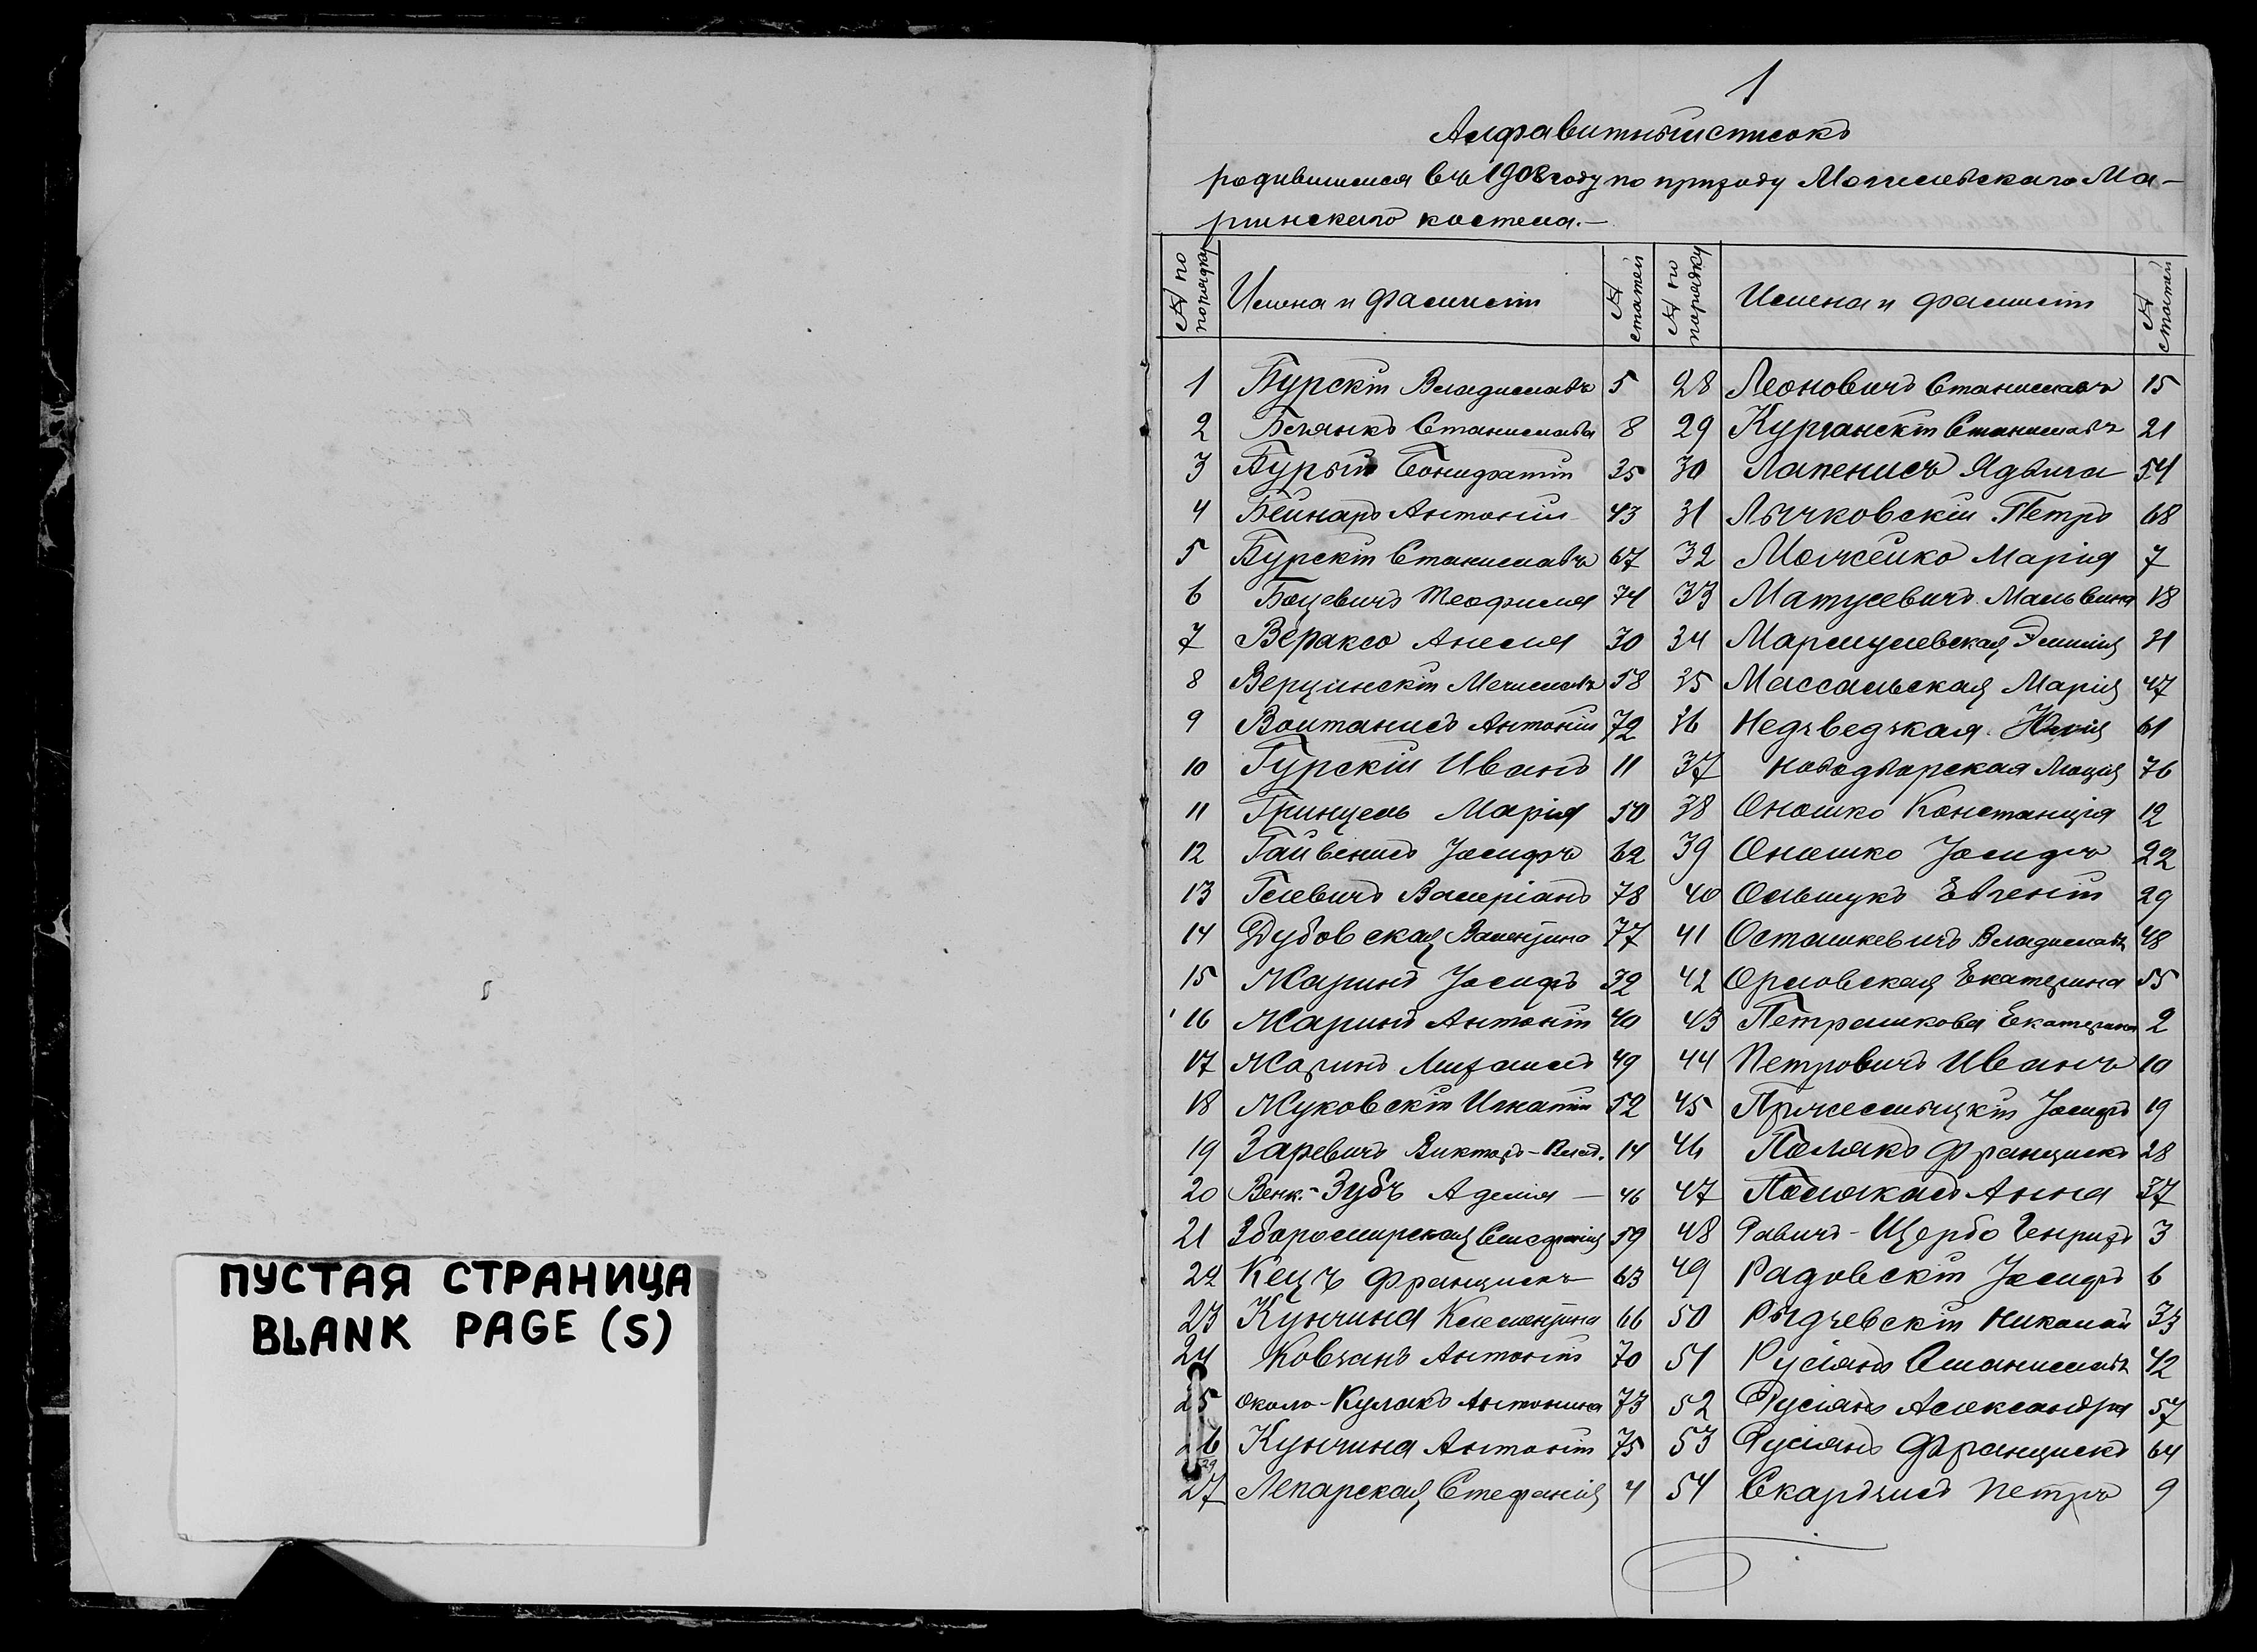 ПУСТАЯ СТРАНИЦА
BLANK PAGE (S)
1
Алфавитный списокъ
родившихся въ 1908 году по приходу Могилевскаго Ма-
ріинскаго костела.—
№ по порядку Имена и фамиліи № статей № по порядку Имена и фамиліи № статей
1 Бурскій Владиславъ 5 28 Леоновичъ Станиславъ 15
2 Станислава 8 29 Курганскій Станиславъ 21
3 Бурый Бонифатій 35 30 Лапенисъ Ядвига 54
4 Бейнаръ Антоній 43 31 Лычковскій Петръ 68
5 Бурскій Станиславъ 67 32 Можейко Марія 7
6 Боцевичъ Теофилія 74 33 Матусевичъ Мальвина 18
7 Вераксо Анеля 30 34 Эмилія 31
8 Верцинскій Мечиславъ 58 35 Массальская Марія 47
9 Войтанисъ Антоній 72 36 Недзведзкая Юлія 61
10 Гурскій Иванъ 11 37 Новодворская 76
11 Гринцель Марія 50 38 Оношко Констанція 12
12 Гайвенисъ Іосифъ 62 39 Оношко Іосифъ 22
13 Гелевичъ Валеріанъ 78 40 Ольшукъ Евгеній 29
14 Дубовская Валентина 77 41 Осташкевичъ Владиславъ 48
15 Жаринъ Іосифъ 32 42 Орловская Екатерина 55
16 Жаринъ Антоній 40 43 Петрашкова Екатерина 2
17 Жаринъ Михаилъ 49 44 Петровичъ Иванъ 10
18 Жуковскій Игнатій 52 45 Іосифъ 19
19 Заревичъ Викторъ-Влад. 14 46 Полякъ Францискъ 28
20 Венк.-Зубъ Аделія — 46 47 Анна 37
21 Збромирская Стефанія 59 48 Равичъ-Щербо Генрихъ 3
22 Кецъ Францискъ 63 49 Радовскій Іосифъ 6
23 Кунчина Клементина 66 50 Рыдзевскій Николай 33
24 Ковзанъ Антоній 70 51 Русіянъ Станиславъ 42
25 Около-Кулакъ Антонина 73 52 Русіянъ Александра 57
26 Кунчина Антоній 75 53 Русіянъ Францискъ 64
27 Лепарская Стефанія 4 54 Скардзисъ Петръ 9